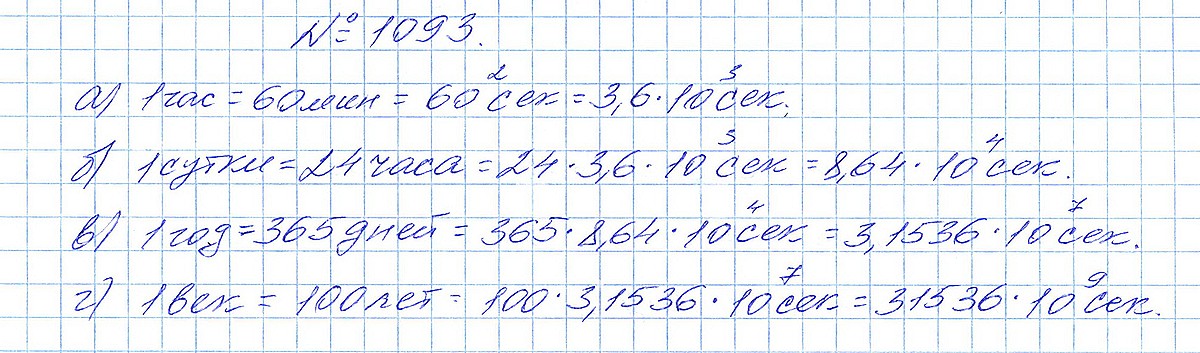 № 1093.
а) 1 час = 60 мин = 60² сек = 3,6 · 10³ сек.
б) 1 сутки = 24 часа = 24 · 3,6 · 10³ сек = 8,64 · 10⁴ сек.
в) 1 год = 365 дней = 365 · 8,64 · 10⁴ сек = 3,1536 · 10⁷ сек.
г) 1 век = 100 лет = 100 · 3,1536 · 10⁷ сек = 31536 · 10⁹ сек.